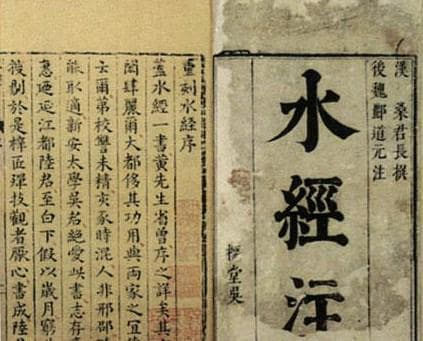 漢 桑君長撰
後魏酈道元注
水經注
堂吳
重刻水經序
蓋水經一書黃先生省曾序之詳矣其
閎肆麗爾大都侈其功用與兩家之冝
云爾第校讐未精亥豕時混人非邢邵
能取適新安太學吳君絕愛此書志存
惠廼延江都陸君至白下假以歲月窮
於是梓匠殫技觀者厭心書成陸